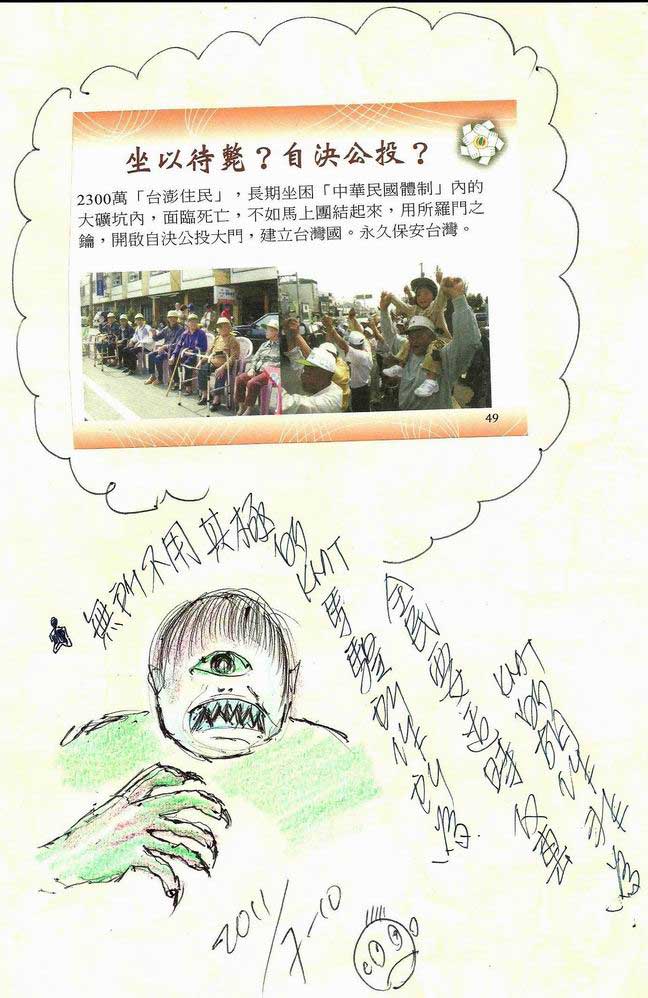 坐以待斃？自決公投？
2300萬「台澎住民」，長期坐困「中華民國體制」內的
大礦坑內，面臨死亡，不如馬上團結起來，用所羅門之
鑰，開啟自決公投大門，建立台灣國。永久保安台灣。
49
無所不用其極的
KMT
全民要
KMT
2011/7-10